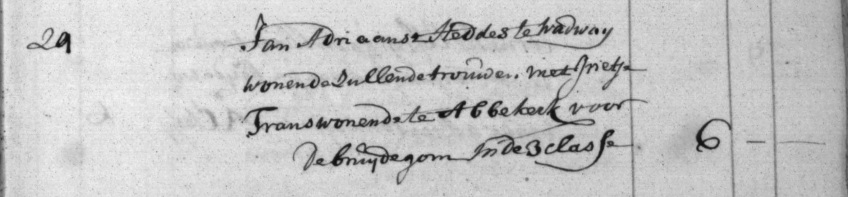 29 Jan Adriaansz Heddes te wadway
wonende Zullende trouwen. met Trietje
Frans wonende te Abbekerk voor
De bruijdegom Jn de 3 classe 6 - -